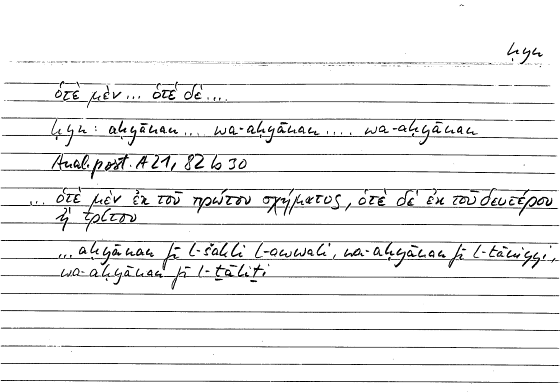 ḥyn
ὁτὲ μὲν ... ὁτὲ δὲ ....
ḥyn : aḥyānan ... wa-aḥyānan .... wa-aḥyānan
Anal. post. A 21, 82 b 30
... ὁτὲ μὲν ἐκ τοῦ πρώτου σχήματος, ὁτὲ δὲ ἐκ τοῦ δευτέρου
ἢ τρίτου
... aḥyānan fī l-šakli l-awwali, wa-aḥyānan fī l-ṯāniyyi,
wa-aḥyānan fī l-ṯāliṯi